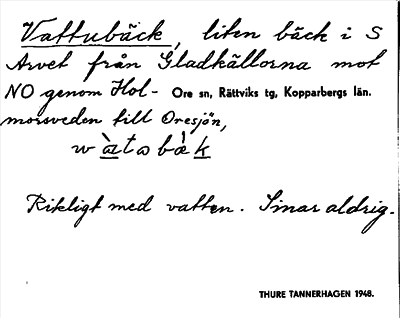 Vattubäck, liten bäck i S
Arvet från Gladkällorna mot
NO genom Hol- Ore sn, Rättviks tg, Kopparbergs län.
morsveden till Oresjön,
Rikligt med vatten. Sinar aldrig.
THURE TANNERHAGEN 1948.